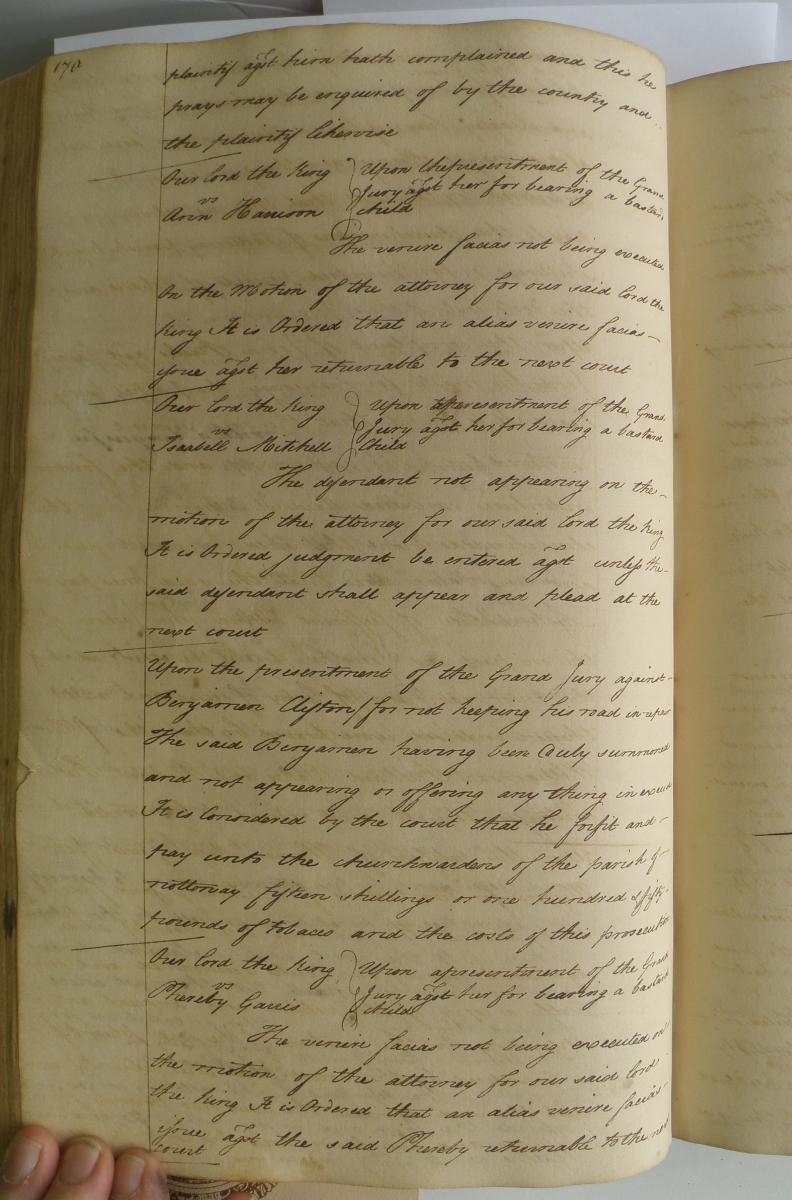 170
plaintif agst him hath complained and this he
prays may be enquired of by the country and
the plaintif likewise
Our lord the King
vs
Ann Harrison
Upon the presentment of the Grand
Jury agst her for bearing a bastard
child
The venire facias not being executed
On the Motion of the attorney for our said lord the
King It is Ordered that an alias venire facias
issue agst her returnable to the next court
Our lord the King
vs
Isaabell Mitchell
Upon presentment of the Grand
Jury agst her for bearing a bastard
Child
The defendant not appearing on the
motion of the attorney for our said lord the King
It is Ordered judgment be entered agst unless the
said defendant shall appear and plead at the
next court
Upon the presentment of the Grand Jury against
Benjamen Clifton for not keeping his road in repair
The said Benjamen having been Duly summoned
and not appearing or offering any thing in excuse
It is Considered by the court that he forfit and
pay unto the churchwardens of the parish of
nottoway fifteen shillings or one hundred & fifty
pounds of tobacco and the costs of this prosecution
Our lord the King
vs
Phereby Garris
Upon apresentment of the Grand
Jury agst her for bearing a bastard
child
The venire facias not being executed on
the motion of the attorney for our said lord
the King It is Ordered that an alias venire facias
issue agst the said Phereby returnable to the next
court